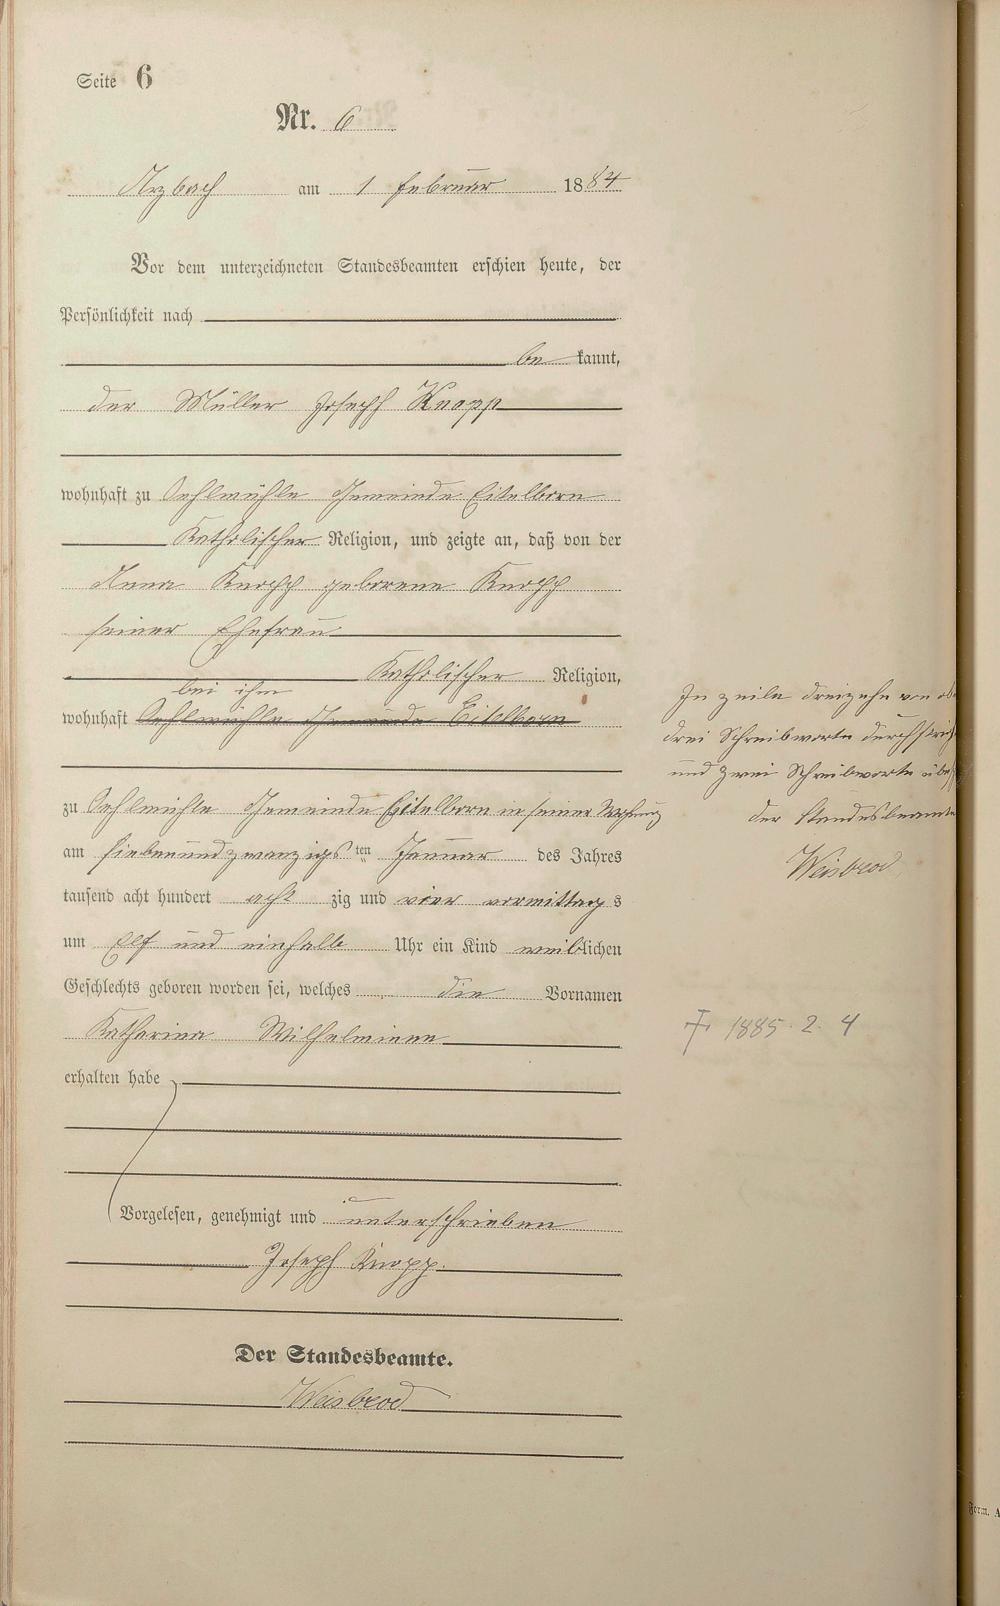 Seite 6
Nr. 6
Arzbach am 1 Februar 1884
Vor dem unterzeichneten Standesbeamten erschien heute, der
Persönlichkeit nach
be kannt,
der Müller Joseph Knopp
wohnhaft zu Oehlmühle Gemeinde Eitelborn
Katholischer Religion, und zeigte an, daß von der
Anna Knopp geborene Knopp
seiner Ehefrau
Katholischer Religion,
bei ihm
wohnhaft Oehlmühle Gemeinde Eitelborn
zu Oehlmühle Gemeinde Eitelborn in seiner Wohnung
am siebenundzwanzigsten Januar des Jahres
tausend acht hundert acht zig und vier vormittags
um Elf und einhalb Uhr ein Kind weiblichen
Geschlechts geboren worden sei, welches die Vornamen
Katharina Wilhelmine
erhalten habe
Vorgelesen, genehmigt und unterschrieben
Joseph Knopp.
Der Standesbeamte.
Weisbrod
In Zeile dreizehn von
drei Schreibworte
und zwei Schreibworte
der Standesbeamte
Weisbrod
† 1885. 2. 4
Form. A